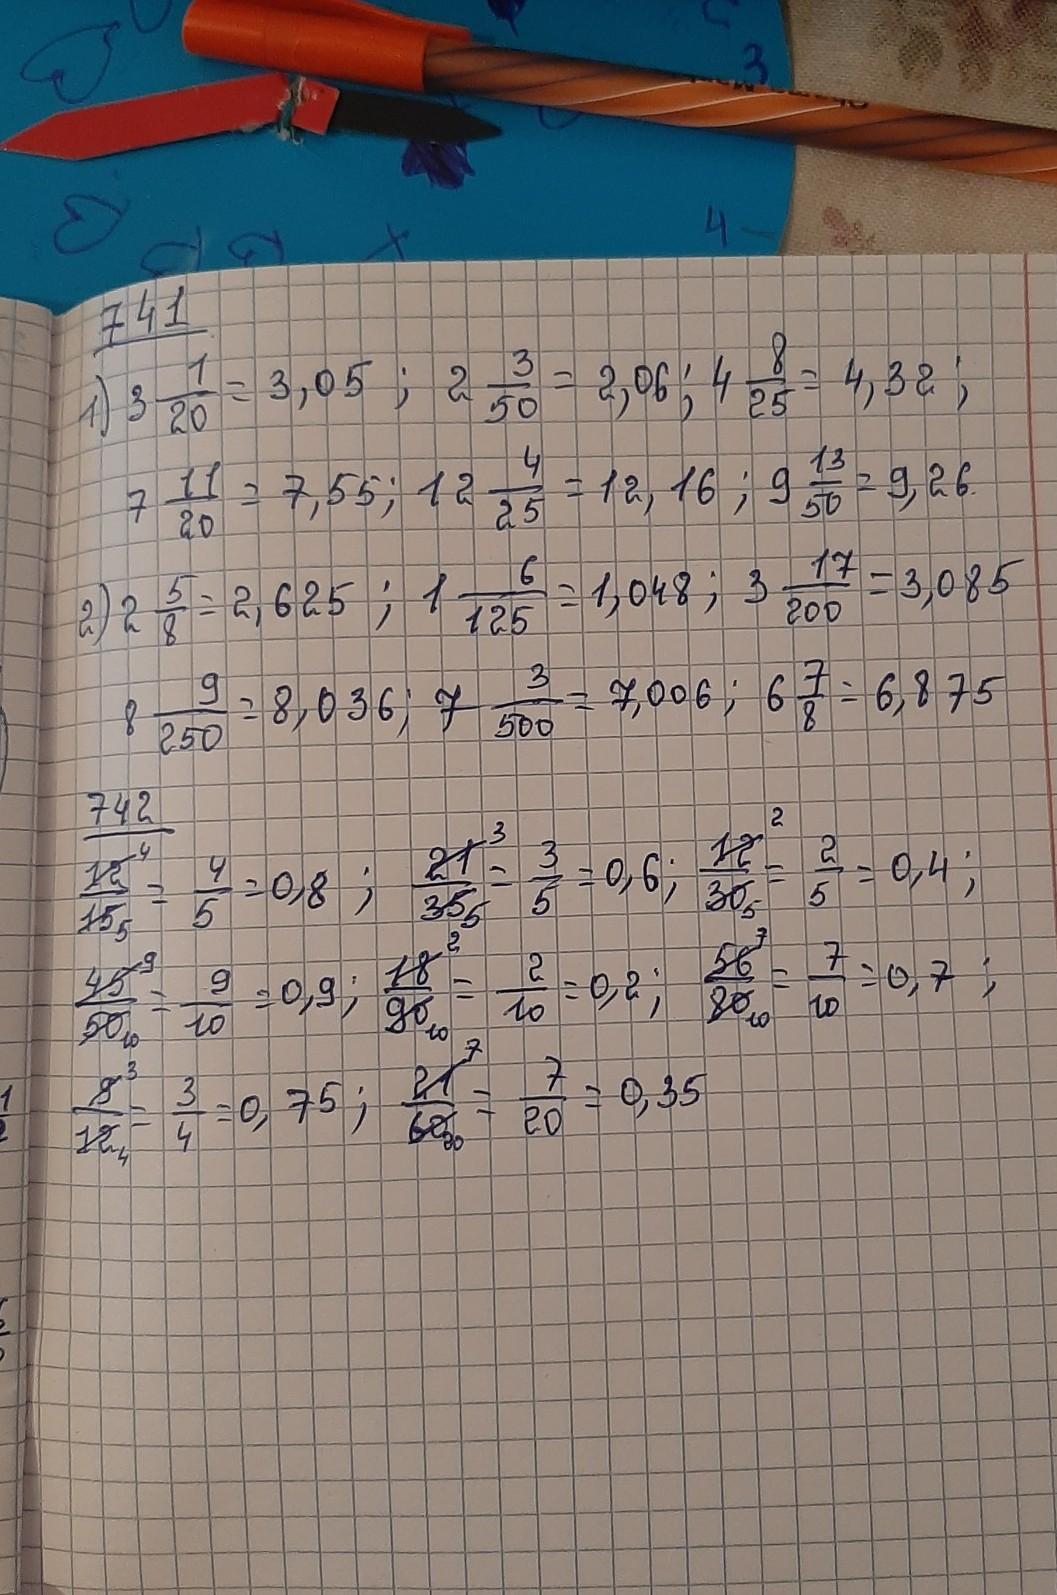 3
4
741
1) 3 1/20 = 3,05 ; 2 3/50 = 2,06 ; 4 8/25 = 4,32 ;
7 11/20 = 7,55 ; 12 4/25 = 12,16 ; 9 13/50 = 9,26
2) 2 5/8 = 2,625 ; 1 6/125 = 1,048 ; 3 17/200 = 3,085
8 9/250 = 8,036 ; 7 3/500 = 7,006 ; 6 7/8 = 6,875
742
12⁴/15₅ = 4/5 = 0,8 ; 21³/35₅ = 3/5 = 0,6 ; 12²/30₅ = 2/5 = 0,4 ;
45⁹/50₁₀ = 9/10 = 0,9 ; 18²/90₁₀ = 2/10 = 0,2 ; 56⁷/80₁₀ = 7/10 = 0,7 ;
9³/12₄ = 3/4 = 0,75 ; 21⁷/60₂₀ = 7/20 = 0,35